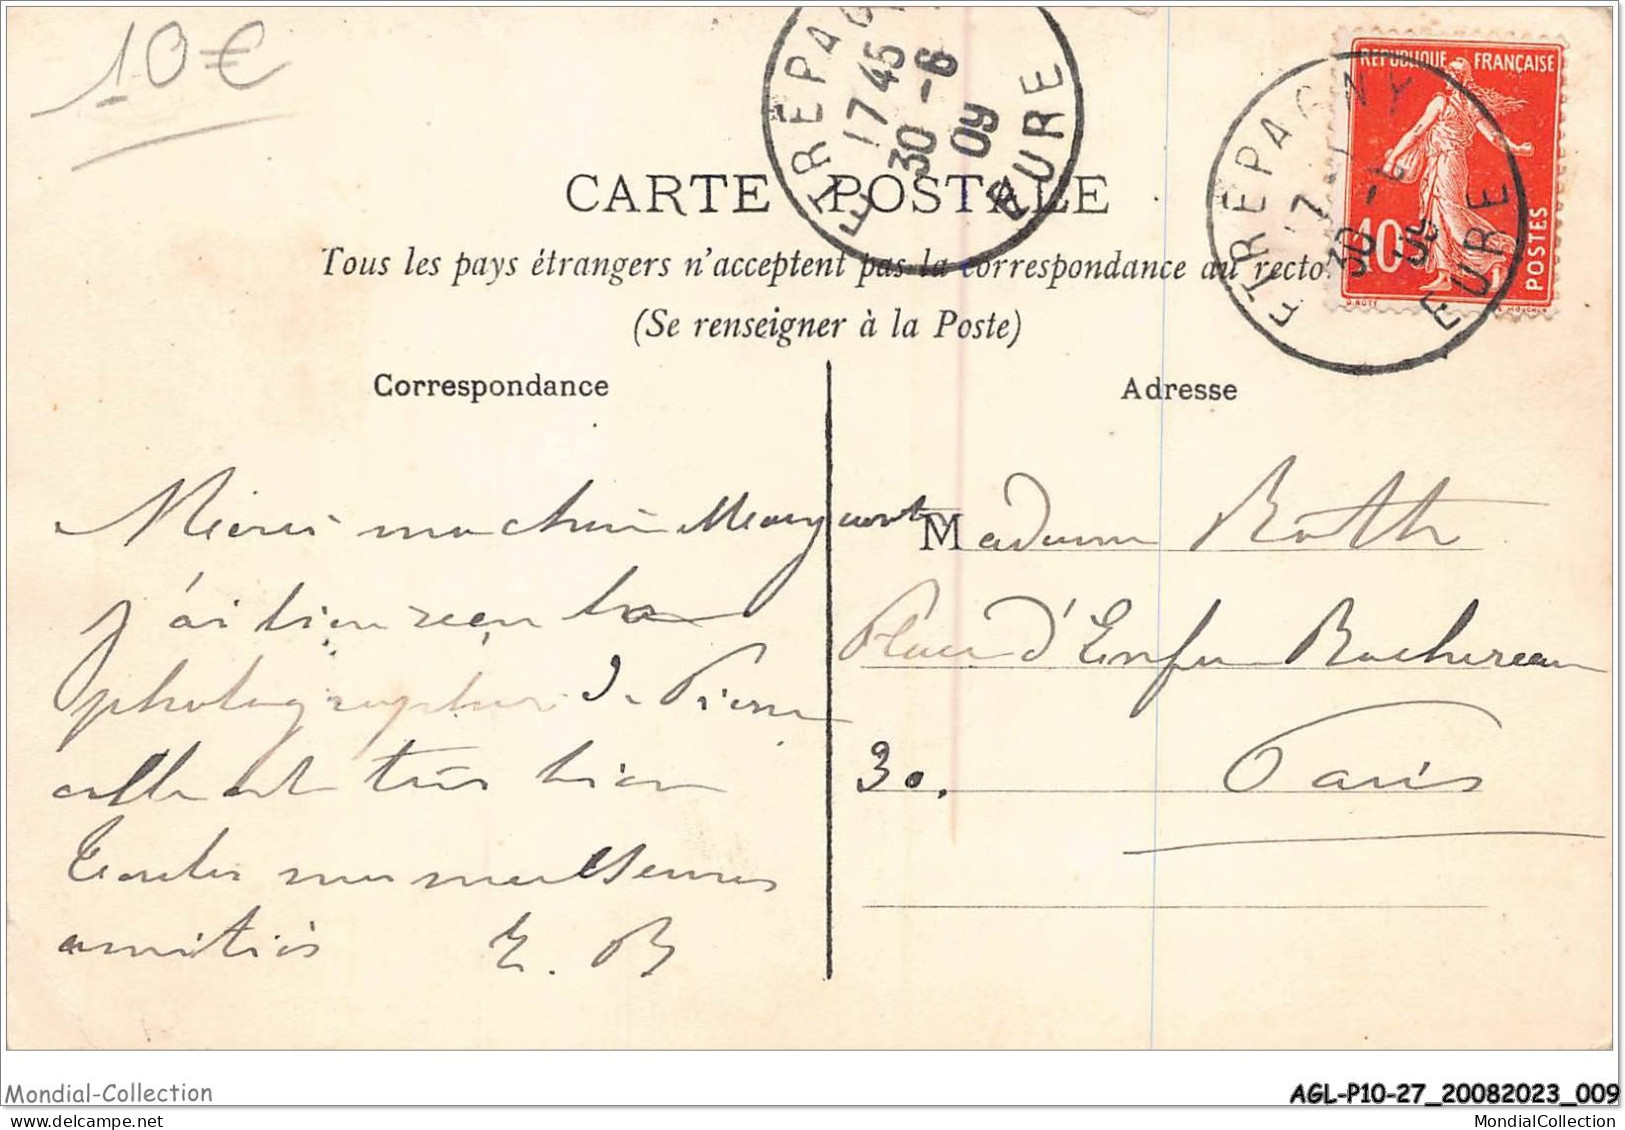 10€
ETRÉPAGNY
17 45
30 -6
09
EURE
RÉPUBLIQUE FRANÇAISE
10
POSTES
ETRÉPAGNY
17
30 -6
09
EURE
CARTE POSTALE
Tous les pays étrangers n'acceptent pas la correspondance au recto
(Se renseigner à la Poste)
Correspondance
Adresse
Merci ma chère
j'ai bien reçu la
photographie de Pierre
elle est très bien
Toutes mes meilleures
amitiés E. B
Madame Roth
Place d'Enfer Rochereau
30. Paris
Mondial-Collection
AGL-P10-27_20082023_009
MondialCollection
MondialCollection